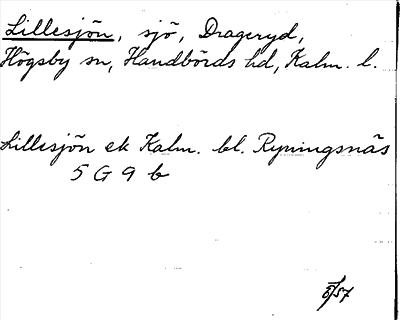 Lillesjön, sjö, Drageryd,
Högsby sn, Handbörds hd, Kalm. l.
Lillesjön ek Kalm. bl. Ryningsnäs
5 G 9 b